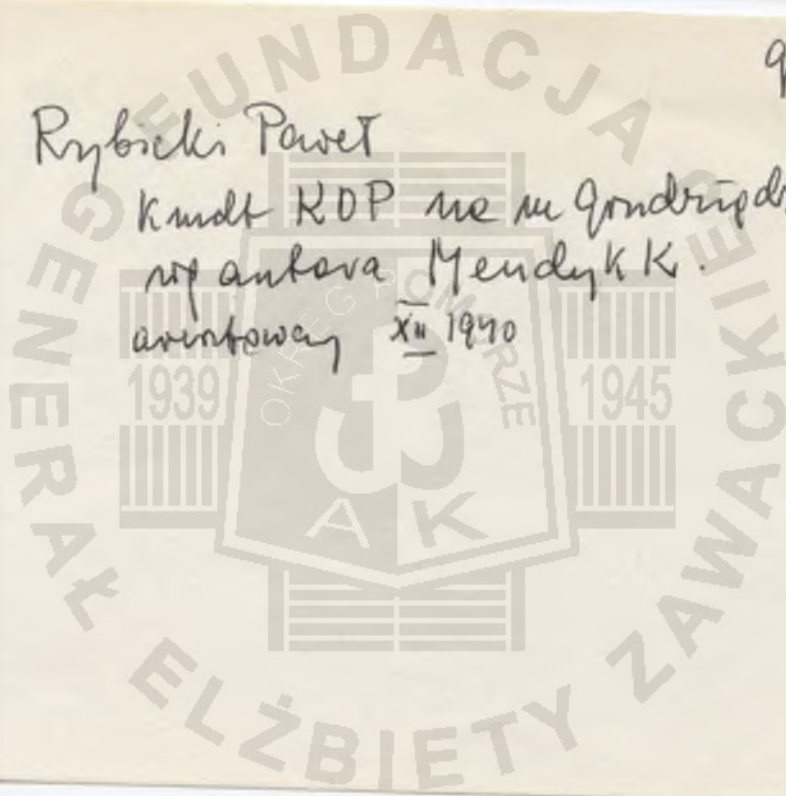 Rybicki Paweł
Kmdt KOP na m Grudziądz
wg autora Mendyk K.
aresztowany XII 1940
FUNDACJA GENERAŁ ELŻBIETY ZAWACKIEJ
OKRĘG POMORZE
1939 1945
A K